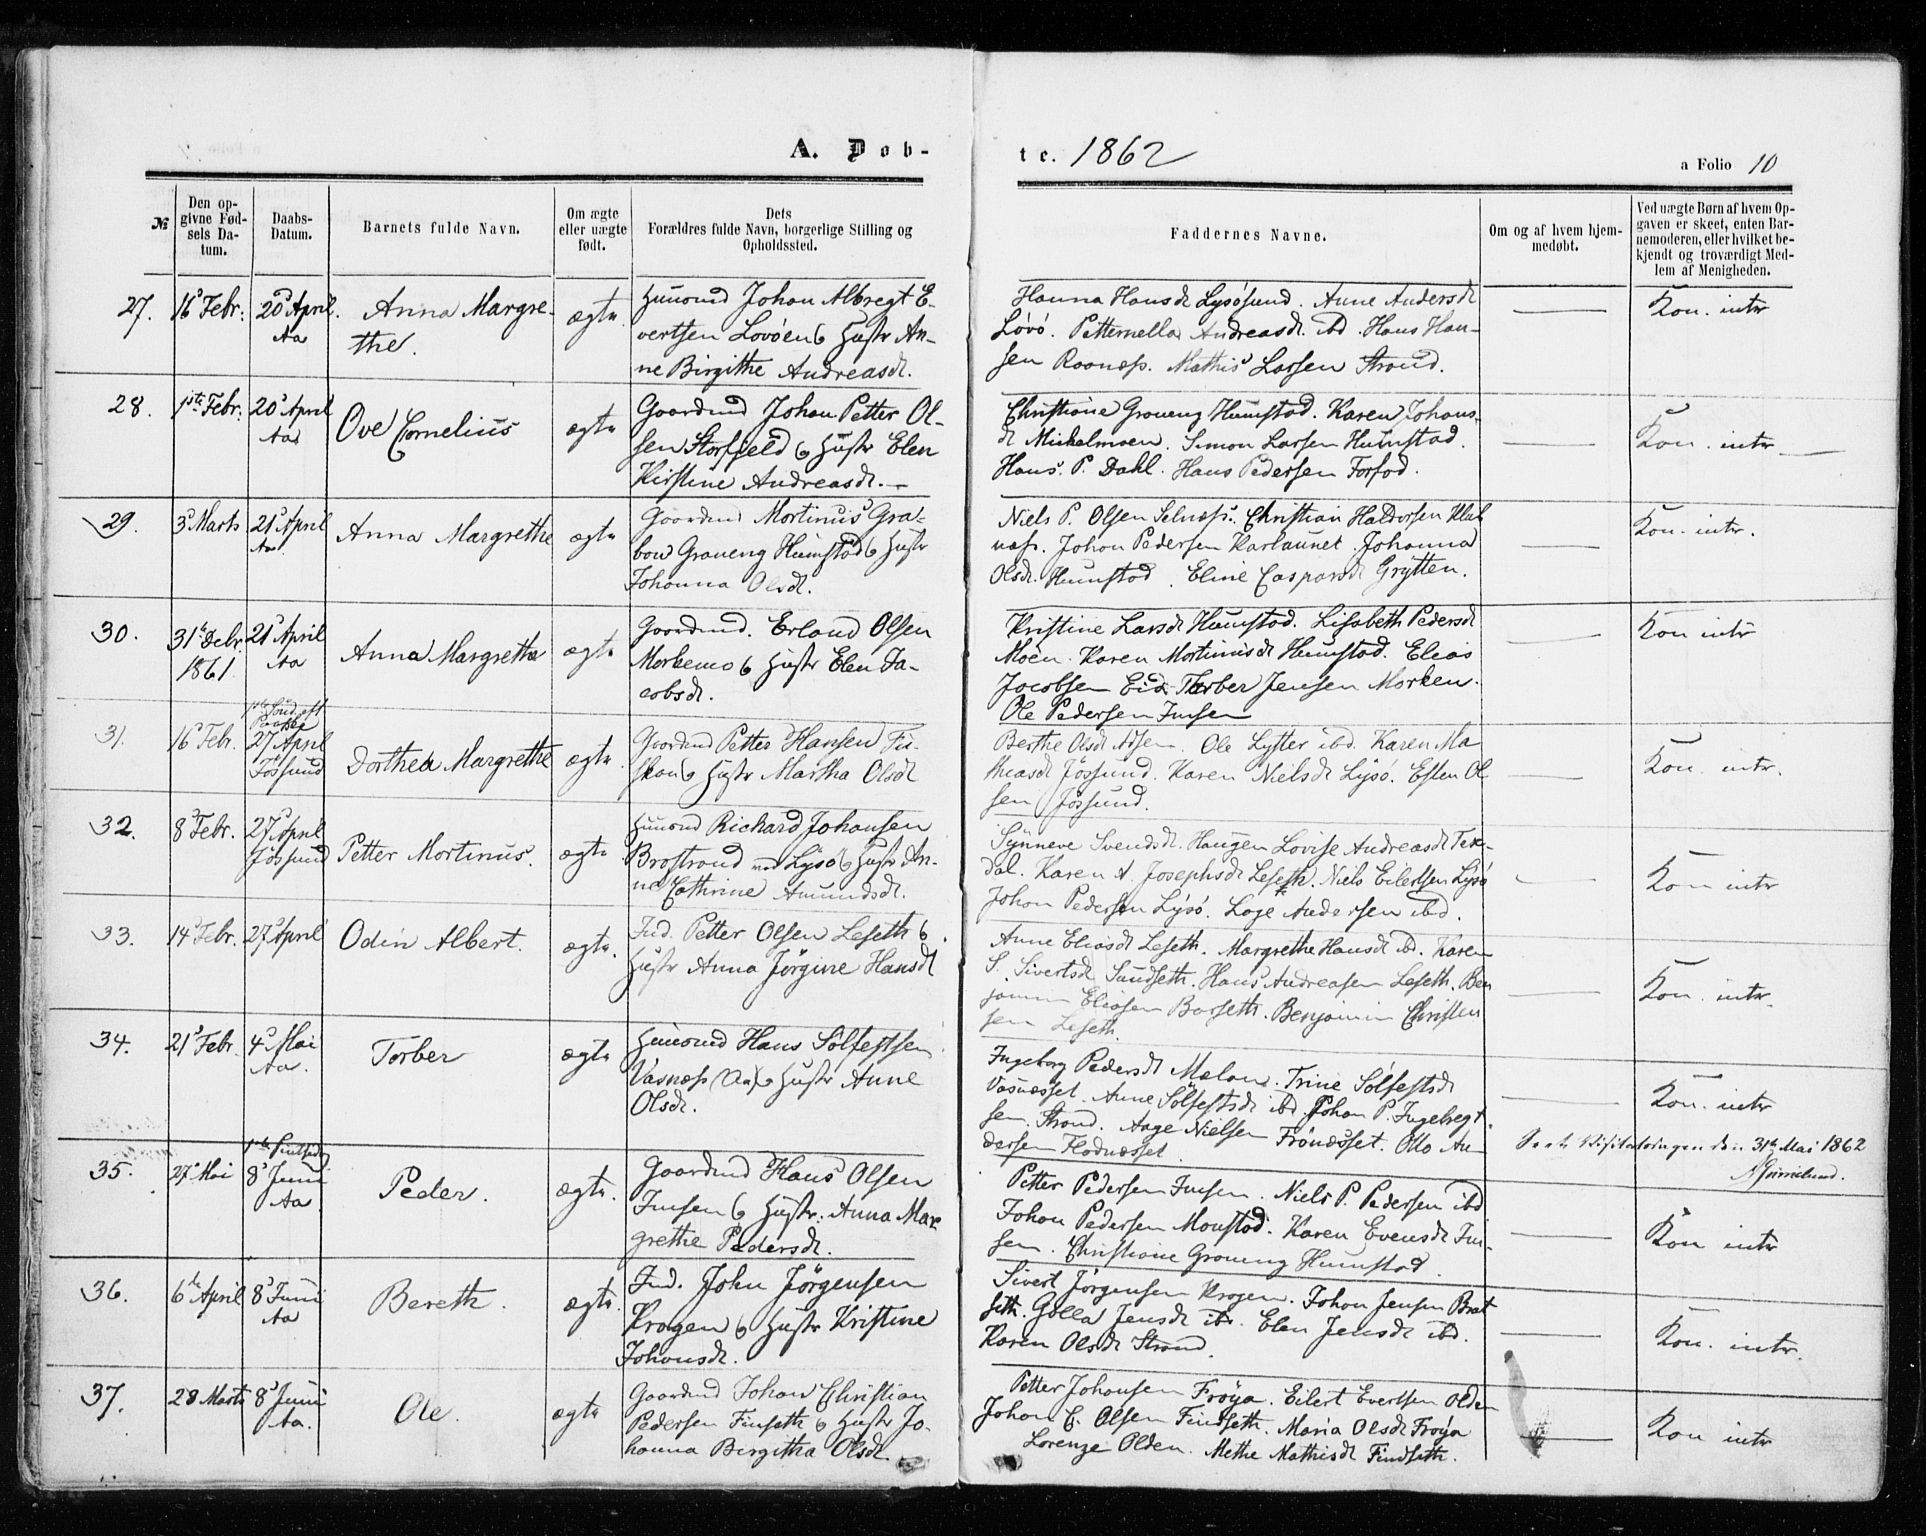 A. Dob-
te. 1862
a Folio 10
№
Den op-
givne Fød-
sels Da-
tum.
Daabs-
Datum.
Barnets fulde Navn.
Om ægte
eller uægte
født.
Dets
Forældres fulde Navn, borgerlige Stilling og
Opholdssted.
Faddernes Navne.
Om og af hvem hjem-
medøbt.
Ved uægte Børn af hvem Op-
gaven er skeet, enten Bar-
nemoderen, eller hvilket be-
kjendt og troværdigt Med-
lem af Menigheden.
27. 16 Febr. 20 April
Aa
Anna Margre-
the.
ægte
Huusmd Johan Albregt E-
vertsen Lovöen & Hustr An-
ne Birgithe Andreasdt.
Hanna Hansdt Lysösund. Anne Andersdt
Lövö. Petternella Andreasdt. ibd. Hans Han-
sen Raanæss. Mathis Larsen Strand.
Kon. intr
28. 1ste Febr. 20 April
Aa
Ove Cornelius
ægte
Gaardmd Johan Petter Ol-
sen Storfjeld & Hustr Elen
Kirstine Andreasdt.
Christiane Graueng Humstad. Karen Johans-
dt Mickelmoen. Simon Larsen Humstad.
Hans. P. Dahl. Hans Pedersen Forfod.
Kon. intr
29. 3 Marts 21 April
Aa
Anna Margrethe
ægte
Gaardmd Mortinus Gra-
bow Graueng Humstad & Hustr
Johanna Olsdt.
Niels P. Olsen Selnæss. Christian Haldorsen
næss. Johan Pedersen Karlaunet. Johanna
Olsdt. Humstad. Eline Caspersdt Grytten.
Kon. intr.
30. 31te Debr. 21 April
1861 Aa
Anna Margrethe
ægte
Gaardmd. Erland Olsen
Morkemo & Hustr Elen Ja-
cobsdt.
Kristine Larsdt Humstad. Lisabeth Pedersdt
Moen. Karen Mortinusdt Humstad. Elias
Jacobsen Eid. Torber Jensen Morken.
Ole Pedersen Insen
Kon intr
31. 16 Febr. 1ste Sönd. eft
Paaske
27 April
Jössund
Dorthea Margrethe
ægte
Gaardmd Petter Hansen Fi-
skan & Hustr Martha Olsdt
Berthe Olsdt. Ole Lytter ibd. Karen Ma
thiasdt Jössund. Karen Nielsdt Lysö. Esten Ol
sen Jössund.
Kon. intr.
32. 8 Febr. 27 April
Jössund
Petter Mortinus.
ægte
Huusmd Richard Johansen
Brostrand Lysö & Hustr An-
na Cathrine Amundsdt.
Synneve Svendsdt. Haugen Lovise Andreasdt Tek-
dal. Karen A. Josephsdt Leseth. Niels Eilertsen Lysö
Johan Pedersen Lysö. Andersen ibd.
Kon intr
33. 14 Febr. 27 April
Odin Albert.
ægte.
Ind. Petter Olsen Leseth &
Hustr Anna Jörgine Hansdt
Anne Eliasdt Leseth. Margrethe Hansdt ibd. Karen
S. Sivertsdt Sundseth. Hans Andreasen Leseth. Ben
jamin Eliasen Barseth. Benjamin Christen
sen Leseth.
Kon. intr.
34. 21 Febr. 4 Mai
Aa.
Torber
ægte
Huusmd Hans Solfestsen
Vasnæss (Aa) & Hustr Anne
Olsdt.
Ingeborg Pedersdt Mælan. Trine Solfestsdt
Vasnæsset. Anne Solfestsdt ibd. Johan P. Ingebregt
sen. Strand. Aage Nielsen Frönæsset. Otto An-
dersen Flodnæsset.
Kon. intr
Seet Visitatsdagen den 31te Mai 1862
A Grimelund.
35. 27 Mai 1ste Pintsedag
8 Juni
Aa.
Peder.
ægte.
Gaardmd Hans Olsen
Insen & Hustr: Anna Mar
grethe Pedersdt.
Petter Pedersen Insen. Niels P. Pedersen ibd
Johan Pedersen Monstad. Karen Evensdt In-
sen. Christiane Graueng Humstad.
Kon intr
36. 6te April 8 Juni
Aa
Bereth.
ægte.
Ind. John Jörgensen
Krogen & Hustr Kristine
Johansdt.
Sivert Jörgensen Krogen. Johan Jensen Brat
seth. Golla Jensdt ibd. Elen Jensdt ibd.
Karen Olsdt Strand.
Kon. intr.
37. 28 Marts 8 Juni
Aa.
Ole.
ægte
Gaardmd Johan Christian
Pedersen Finseth & Hustr Jo-
hanna Birgitha Olsdt.
Petter Johansen Fröya. Eilert Evertsen Olden
Johan C. Olsen Findseth. Maria Olsdt Fröya
Lorenze Olden. Methe Mathisdt Findseth.
Kon intr